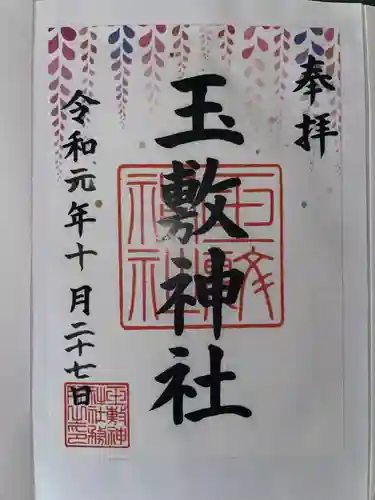 奉拝
玉敷神社
令和元年十月二十七日
玉敷神社
玉敷神社務所之印